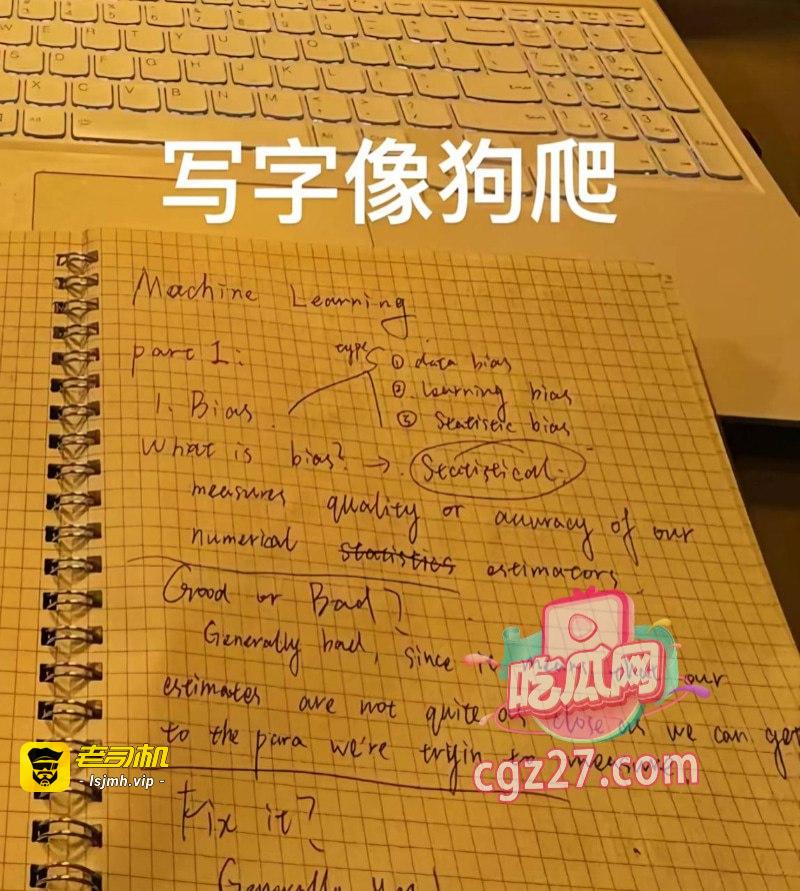 写字像狗爬
Machine Learning
part 1:
type
① data bias
② Learning bias
③ Statistic bias
1. Bias
What is bias? → Statistical:
measures quality or accuracy of our
numerical statistics estimators
Good or Bad?
Generally bad, since it means that our
estimates are not quite as close as we can get
to the para we're tryin to measure.
Fix it?
Generally
吃瓜网
cgz27.com
老司机
- lsjmh.vip -